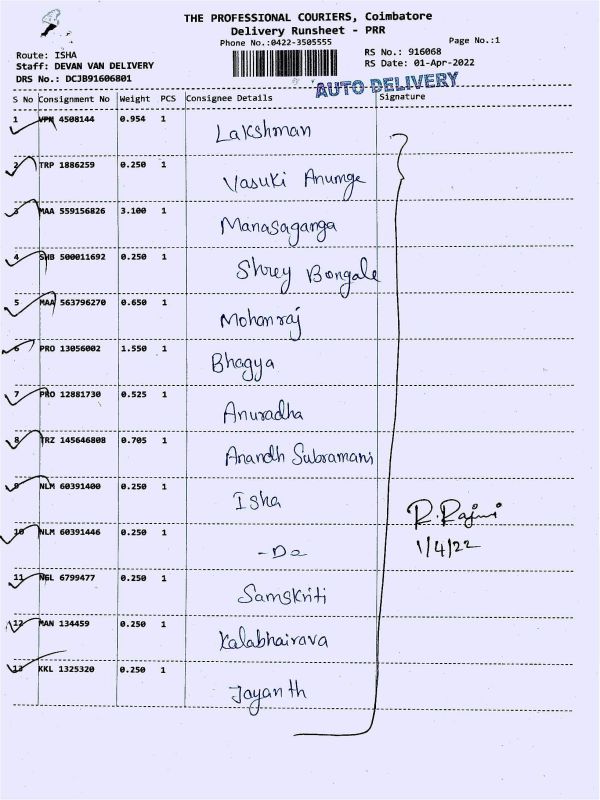 THE PROFESSIONAL COURIERS, Coimbatore
Delivery Runsheet - PRR
Phone No.:0422-3505555
Page No.:1
Route: ISHA
RS No.: 916068
Staff: DEVAN VAN DELIVERY
RS Date: 01-Apr-2022
DRS No.: DCJB91606801
AUTO DELIVERY
S No Consignment No Weight PCS Consignee Details Signature
1 VPM 4508144 0.954 1
Lakshman
2 TRP 1886259 0.250 1
Vasuki Anumge
3 MAA 559156826 3.100 1
Manasaganga
4 SHB 500011692 0.250 1
Shrey Bongale
5 MAA 563796270 0.650 1
Mohanraj
6 PRO 13056002 1.550 1
Bhagya
7 PRO 12881730 0.525 1
Anuradha
8 TRZ 145646808 0.705 1
Anandh Subramani
9 NLM 60391400 0.250 1
Isha
R. Rajini
10 NLM 60391446 0.250 1
1/4/22
- Do
11 NGL 6799477 0.250 1
Samskriti
12 MAN 134459 0.250 1
Kalabhairava
13 KKL 1325320 0.250 1
Jayanth